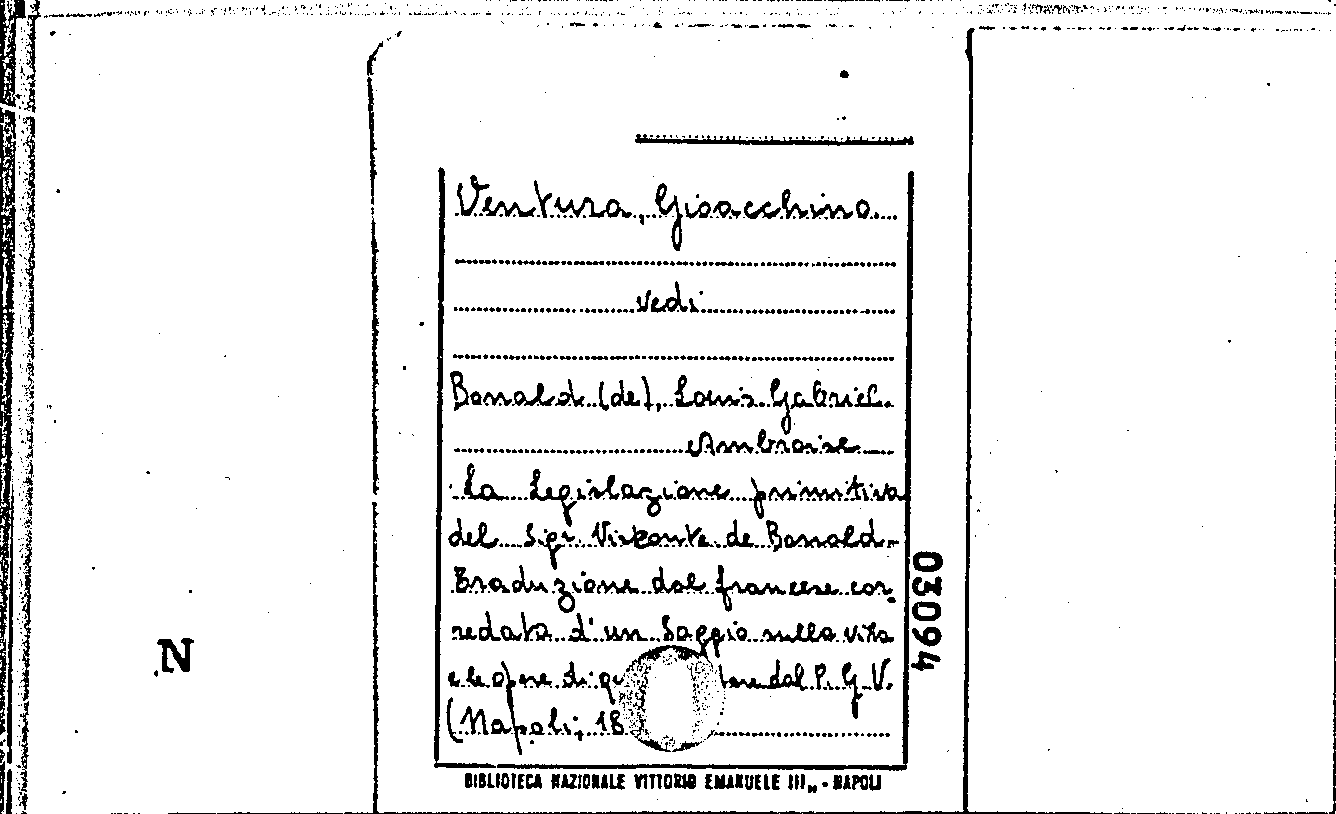 Ventura, Gioacchino
vedi
Bonald (de), Louis Gabriel
Ambroise
La Legislazione primitiva
del Sigr Visconte de Bonald-
Traduzione dal francese cor-
redata d'un Saggio sulla vita
e le opere di dal P. G. V.
(Napoli, 18
03094
N
BIBLIOTECA NAZIONALE VITTORIO EMANUELE III„ - NAPOLI